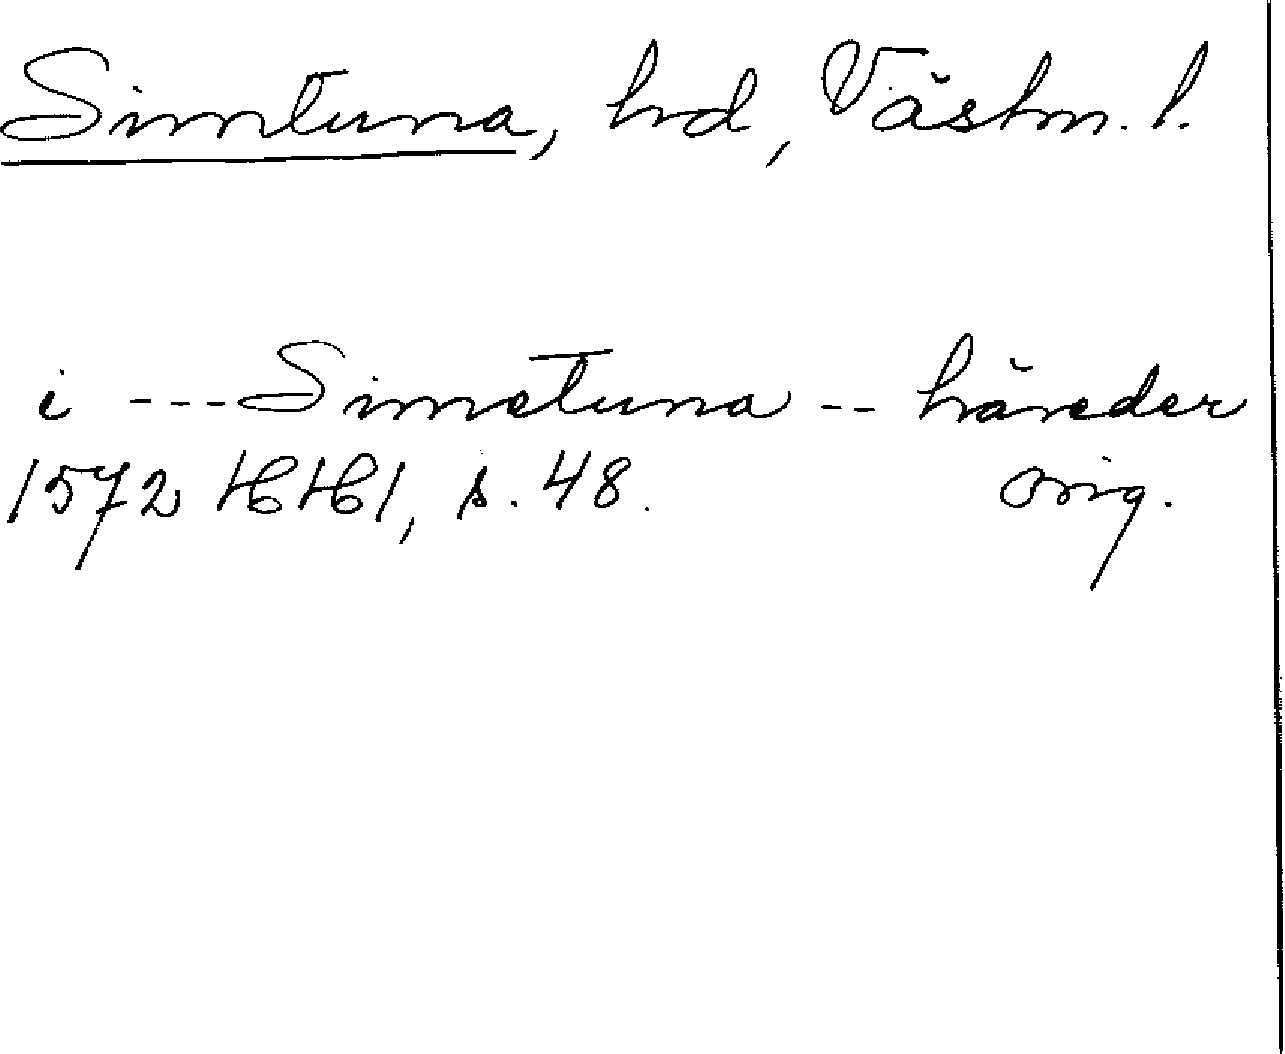 Simtuna, hd, Västm. l.
i --- Simetuna -- häreder
1572 HH1, s. 48. orig.